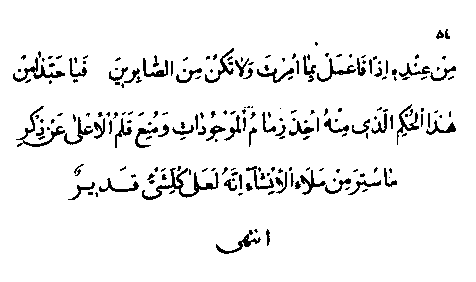 ٥٤
مِنْ عِنْدِهِ اِذًا فَاعْمَلْ بِمٰا اُمِرْتَ وَلٰا تَكُنْ مِنَ الصّٰابِرِينَ فَيٰا حَبَّذٰا مِنْ
هٰذَا الْحُكْمِ الَّذِى مِنْهُ اَخَذَ زِمٰامُ الْمَوْجُودٰاتِ وَمُنِعَ قَلَمُ الْاَعْلىٰ عَنْ ذِكْرِ
مٰا سُتِرَ مِنْ مَلَاءِ الْاِنْشٰآءِ اِنَّهُ لَعَلىٰ كُلِّشَىْءٍ قَدِيرٌ
انتهى